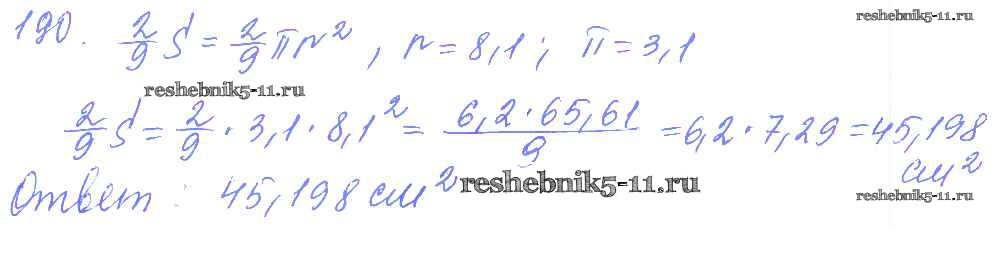 reshebnik5-11.ru
190. 2/9 S = 2/9 πr², r = 8,1; π = 3,1
reshebnik5-11.ru
2/9 S = 2/9 · 3,1 · 8,1² = 6,2 · 65,61 / 9 = 6,2 · 7,29 = 45,198
см²
Ответ: 45,198 см²
reshebnik5-11.ru
reshebnik5-11.ru